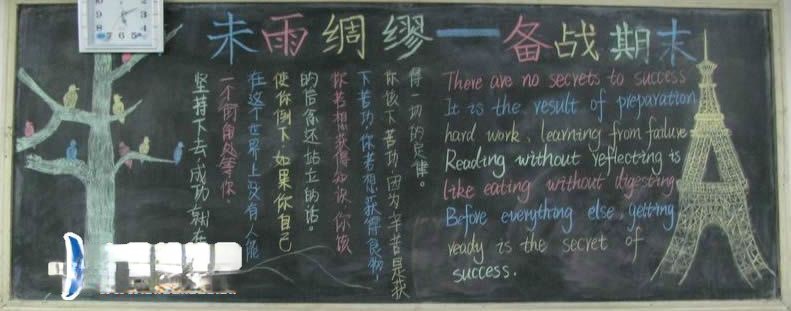 未雨绸缪一备战期末
坚持下去,成功就在
一个街角处等你.
在这个世界上没有人能
使你倒下.如果你自己
的信念还站立的话。
你若想获得知识,你该
下苦功,你若想获得食物,
你该下苦功,因为辛苦是获
得一切的定律。
There are no secrets to success
It is the result of preparation
hard work, learning from failure
Reading without reflecting is
like eating without digesting
Before everything else, getting
ready is the secret of
success.